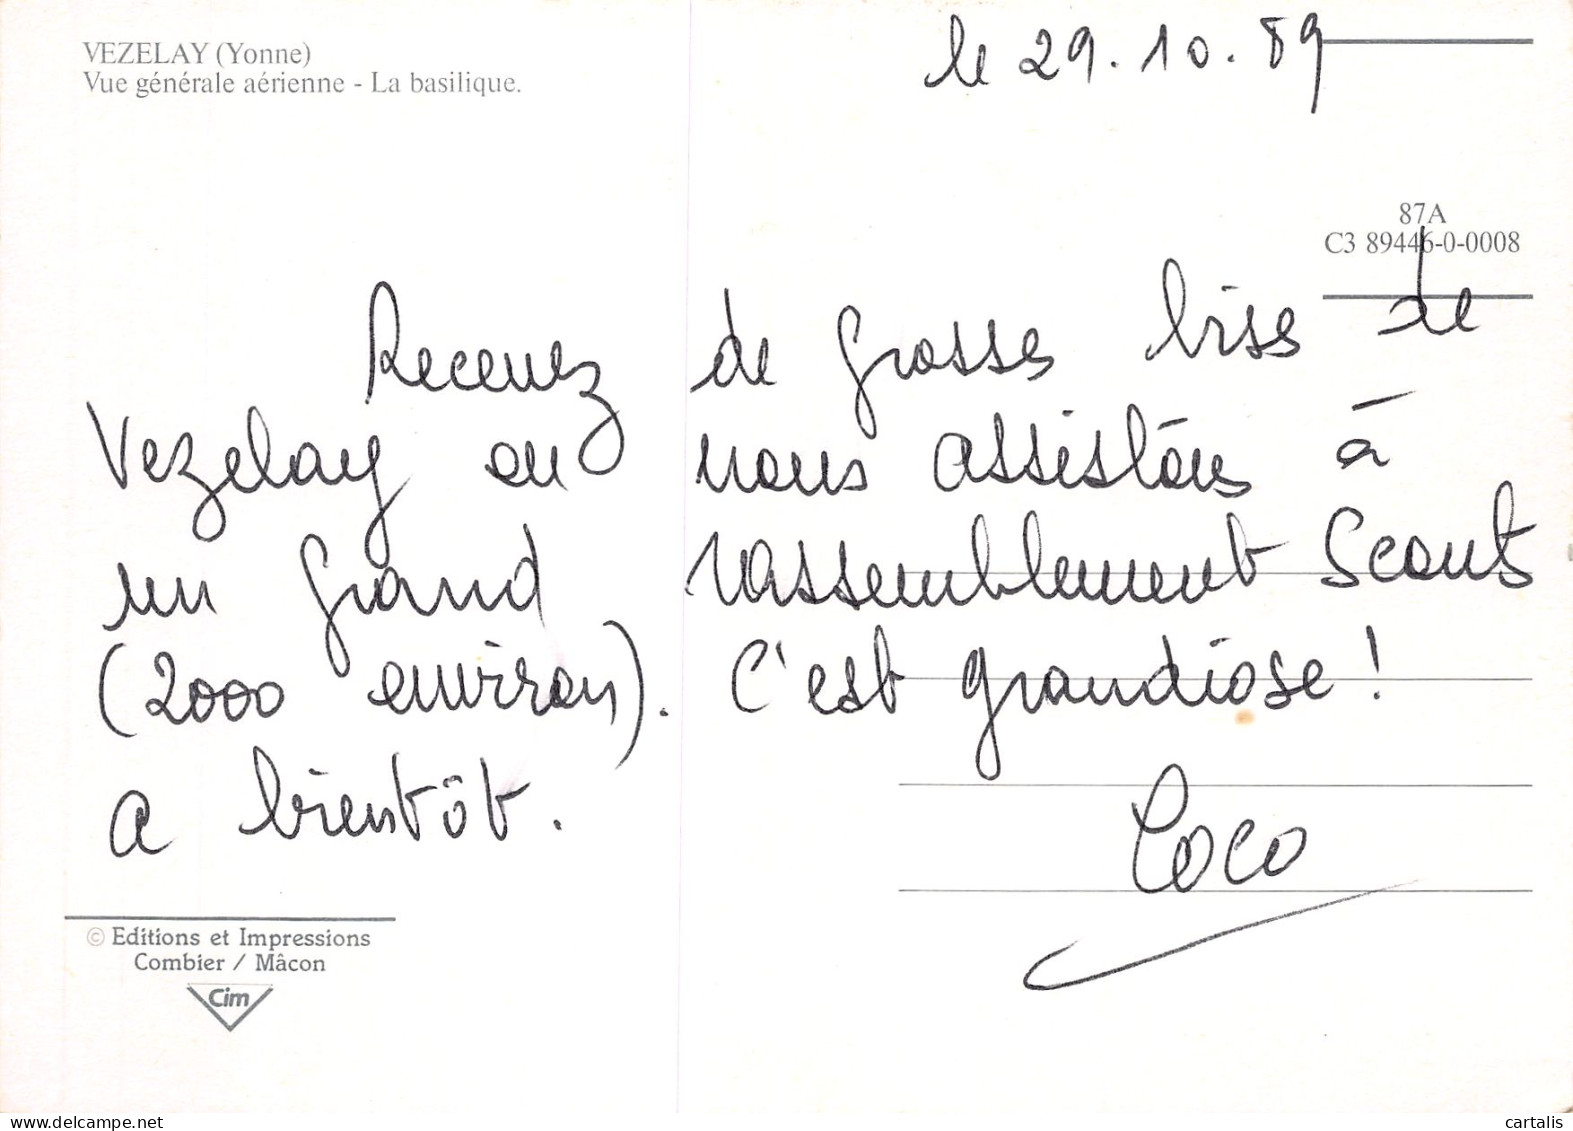 VEZELAY (Yonne)
Vue générale aérienne - La basilique.
le 29.10.89
87A
C3 89446-0-0008
Recevez de grosses bises de
Vezelay ou nous assistons à
un grand rassemblement Scouts
(2000 environ). C'est grandiose !
A bientôt.
Coco
© Editions et Impressions
Combier / Mâcon
Cim
delcampe.net
cartalis